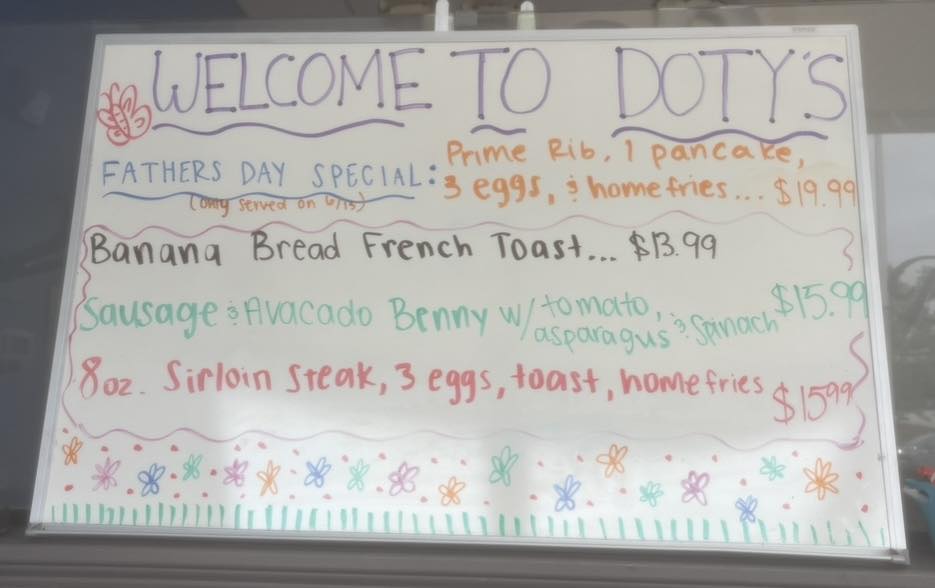 WELCOME TO DOTY'S
FATHERS DAY SPECIAL: Prime Rib, 1 pancake,
3 eggs, & homefries... $19.99
(only served on 6/15)
Banana Bread French Toast... $13.99
Sausage & Avacado Benny w/ tomato,
asparagus & Spinach $15.99
8oz. Sirloin Steak, 3 eggs, toast, homefries
$15.99